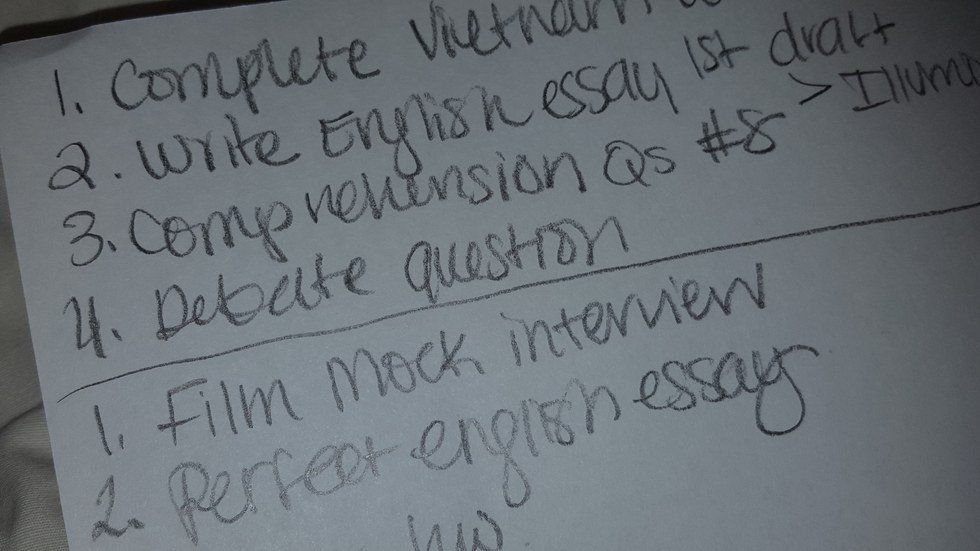 1. Complete Vietnam
2. Write English essay 1st draft
3. Comprehension Qs #8 > Illum
4. Debate question
1. Film Mock interview
2. Perfect english essay
hw.